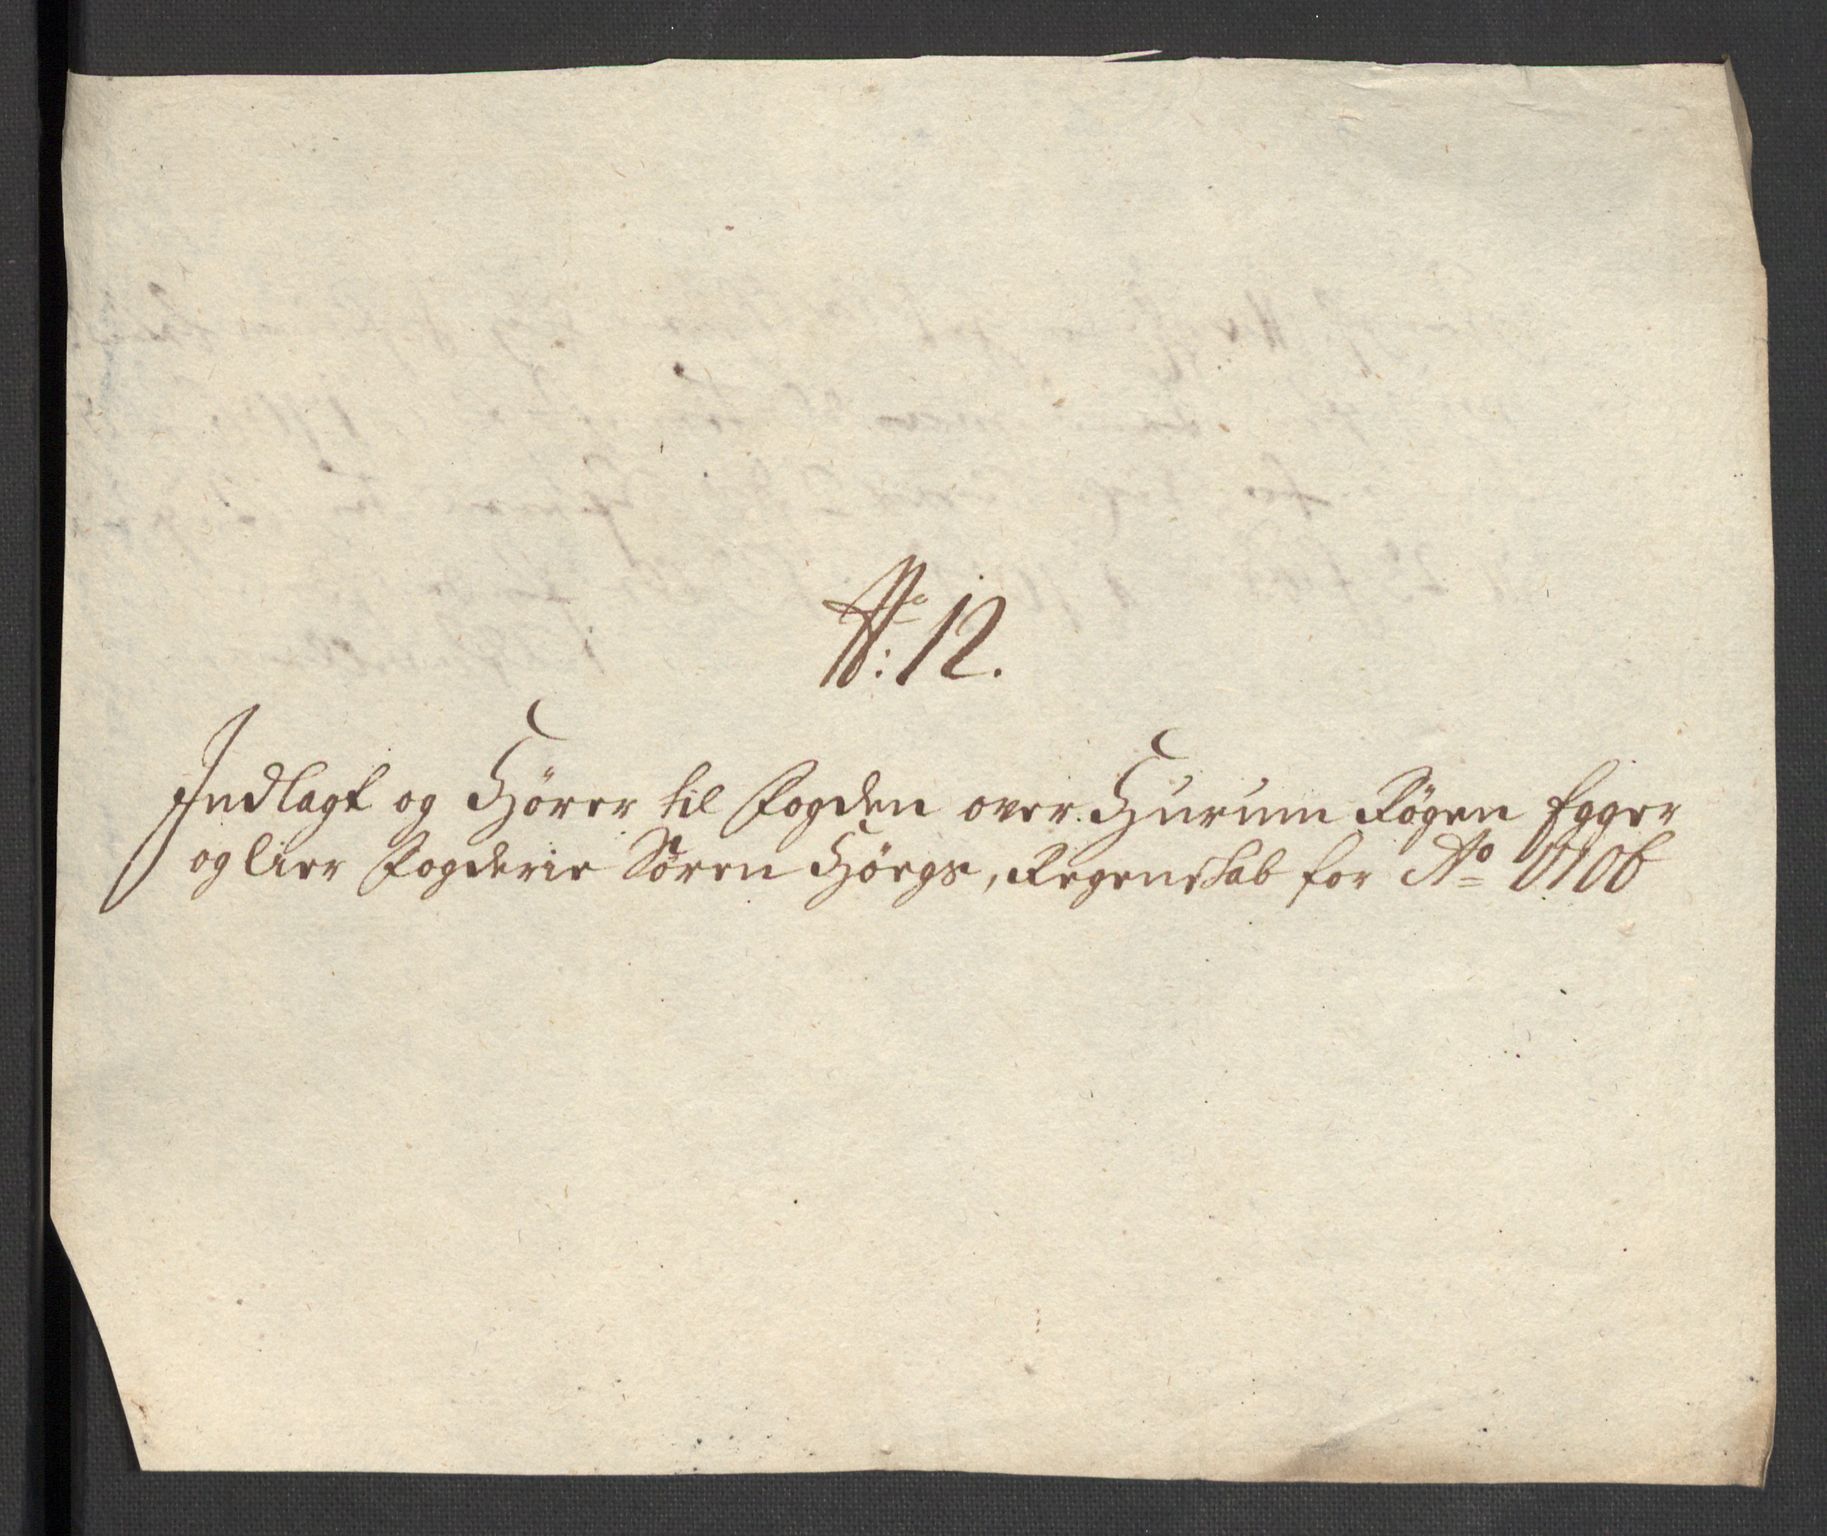 No: 12.
Indlagt og Hörer til Fogden over Hurum Rögen Egger
og lier Fogderie Sören Höegs, Regenskab for Ao 1706